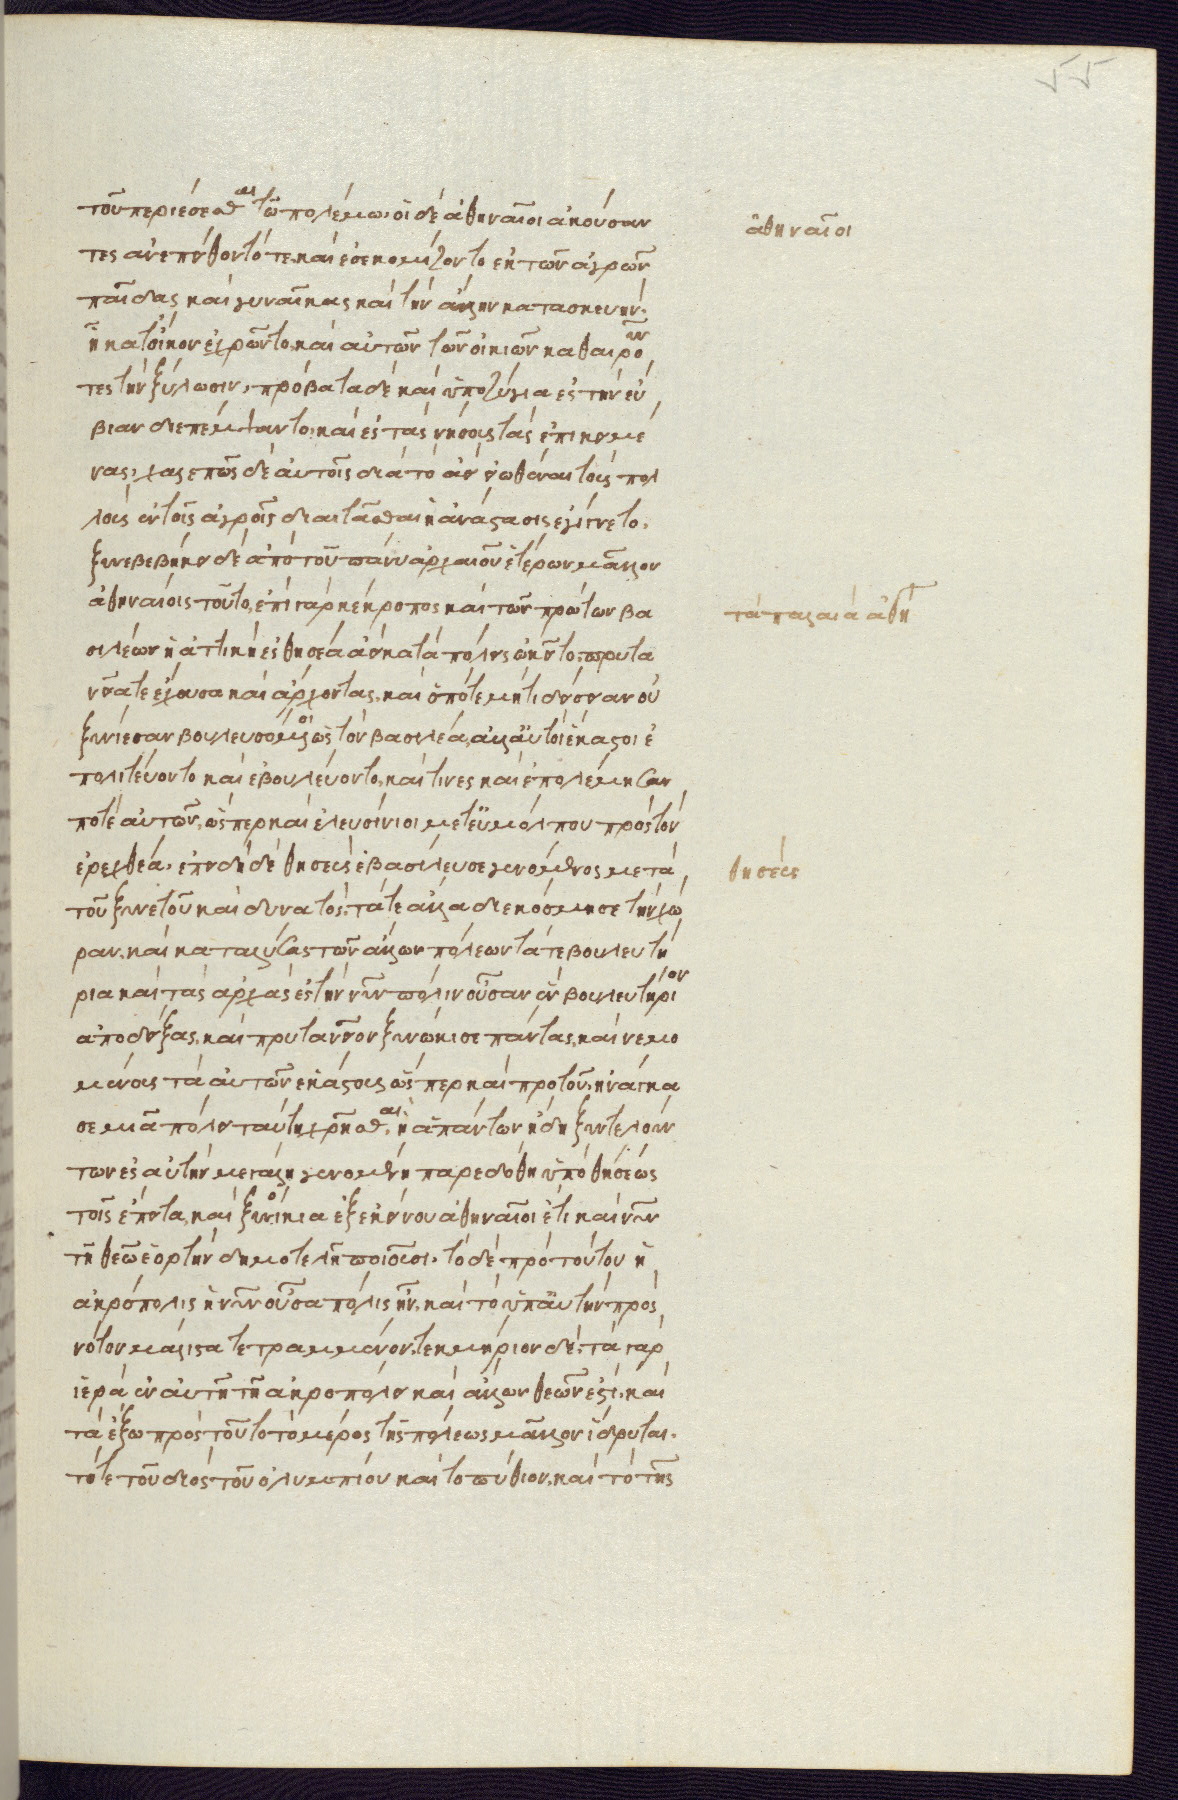 55
τοῦ περιέσεσθαι τῶ πολέμω. οἱ δὲ ἀθηναῖοι ἀκούσαν
ἀθηναῖοι
τες ἀνεπείθοντό τε, καὶ ἐσεκομίζοντο ἐκ τῶν ἀγρῶν
παῖδας καὶ γυναῖκας καὶ τὴν ἄλλην κατασκευὴν.
ἧ κατ οἶκον ἐχρῶντο, καὶ αὐτῶν τῶν οἰκιῶν καθαιροῦν
τες τὴν ξύλωσιν, πρόβατα δὲ καὶ ὑποζύγια ἐς τὴν εὔ
βοιαν διεπέμψαντο, καὶ ἐς τὰς νήσους τὰς ἐπικειμέ
νας, χαλεπῶς δὲ αὐτοῖς διὰ τὸ ἀεὶ εἰωθέναι τοὺς πολ
λοὺς ἐν τοῖς ἀγροῖς διαιτᾶσθαι ἡ ἀνάστασις ἐγίγνετο.
ξυνεβεβήκει δὲ ἀπὸ τοῦ πάνυ ἀρχαίου ἑτέρων μᾶλλον
ἀθηναίοις τοῦτο, ἐπὶ γὰρ κέκροπος καὶ τῶν πρώτων βα
τὰ παλαιὰ ἀθη
σιλέων ἡ ἀττικὴ ἐς θησέα ἀεὶ κατὰ πόλεις ὠκεῖτο, πρυτα
νεῖα τε ἔχουσα καὶ ἄρχοντας, καὶ ὁπότε μήτι δείσειαν οὐ
ξυνίεσαν βουλευσόμενοι ὡς τὸν βασιλέα, ἀλλ αὐτοὶ ἕκαστοι ἐ
πολιτεύοντο καὶ ἐβουλεύοντο, καὶ τινες καὶ ἐπολέμησαν
ποτὲ αὐτῶν, ὥσπερ καὶ ἐλευσίνιοι μετ εὐμόλπου πρὸς τὸν
ἐρεχθέα, ἐπειδὴ δὲ θησεὺς ἐβασίλευσε γενόμενος μετὰ
θησεύς
τοῦ ξυνετοῦ καὶ δυνατός, τά τε ἄλλα διεκόσμησε τὴν χώ
ραν, καὶ καταλύσας τῶν ἄλλων πόλεων τά τε βουλευτή
ρια καὶ τὰς ἀρχὰς ἐς τὴν νῦν πόλιν οὖσαν ἓν βουλευτήριον
ἀποδείξας, καὶ πρυτανεῖον ξυνώκισε πάντας, καὶ νεμο
μένους τὰ αὐτῶν ἑκάστους ὥσπερ καὶ προτοῦ, ἠνάγκα
σε μιᾶ πόλει ταύτη χρῆσθαι, ἡ ἁπάντων ἤδη ξυντελούν
των ἐς αὐτὴν μεγάλη γενομένη παρεδόθη ὑπὸ θησέως
τοῖς ἔπειτα, καὶ ξυνοίκια ἐξ ἐκείνου ἀθηναῖοι ἔτι καὶ νῦν
τῆ θεῶ ἑορτὴν δημοτελῆ ποιοῦσι. τὸ δὲ πρὸ τούτου ἡ
ἀκρόπολις ἡ νῦν οὖσα πόλις ἦν, καὶ τὸ ὑπ αὐτὴν πρὸς
νότον μάλιστα τετραμμένον, τεκμήριον δέ, τὰ γὰρ
ἱερὰ ἐν αὐτῆ τῆ ἀκροπόλει καὶ ἄλλων θεῶν ἐστὶ, καὶ
τὰ ἔξω πρὸς τοῦτο τὸ μέρος τῆς πόλεως μᾶλλον ἵδρυται.
τό τε τοῦ διὸς τοῦ ὀλυμπίου καὶ τὸ πύθιον, καὶ τὸ τῆς